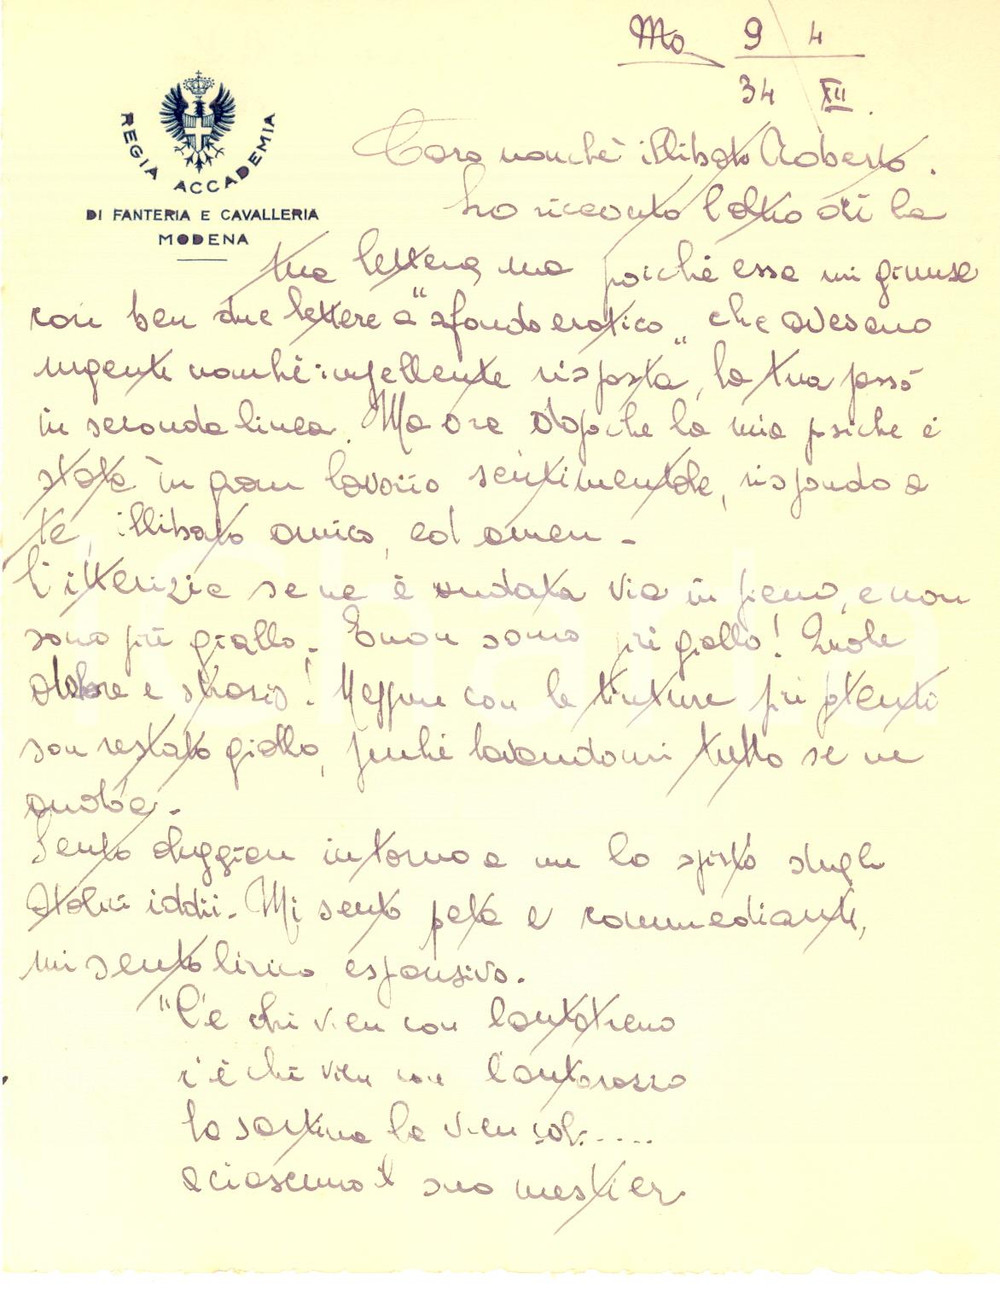 Mo 9 4
34 XII.
REGIA ACCADEMIA
DI FANTERIA E CAVALLERIA
MODENA
Caro nonchè illibato Roberto.
ho ricevuto l'altro dì la
tua lettera, ma poiché essa mi giunse
con ben due lettere a "sfondo erotico" che avevano
urgente nonchè impellente risposta, la tua passò
in seconda linea. Ma ora dopo che la mia psiche è
stata in gran lavorio sentimentale, rispondo a
te, illibato amico, ed amen -
L'itterizia se ne è andata via in pieno, e non
sono più giallo. E non sono più giallo! Quale
dolore e strazio! Neppure con le tinture più potenti
son restato giallo, perché lavandomi tutto se ne
andava.
Sento aleggiar intorno a me lo spirto degli
iddii. Mi sento poeta e commediante,
mi sento lirico espansivo.
"C'è chi vien con l'autotreno
c'è chi vien con l'autorazzo
la sartina la vien coi.....
a ciascuno il suo mestier